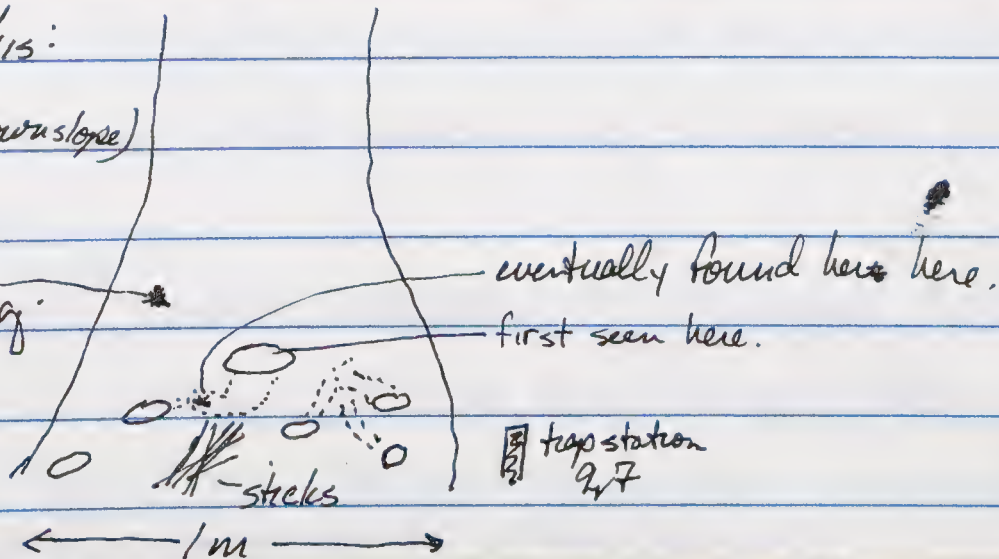 is:
ownslope)
eventually found here here.
g.
first seen here.
trap station
2,7
sticks
1m